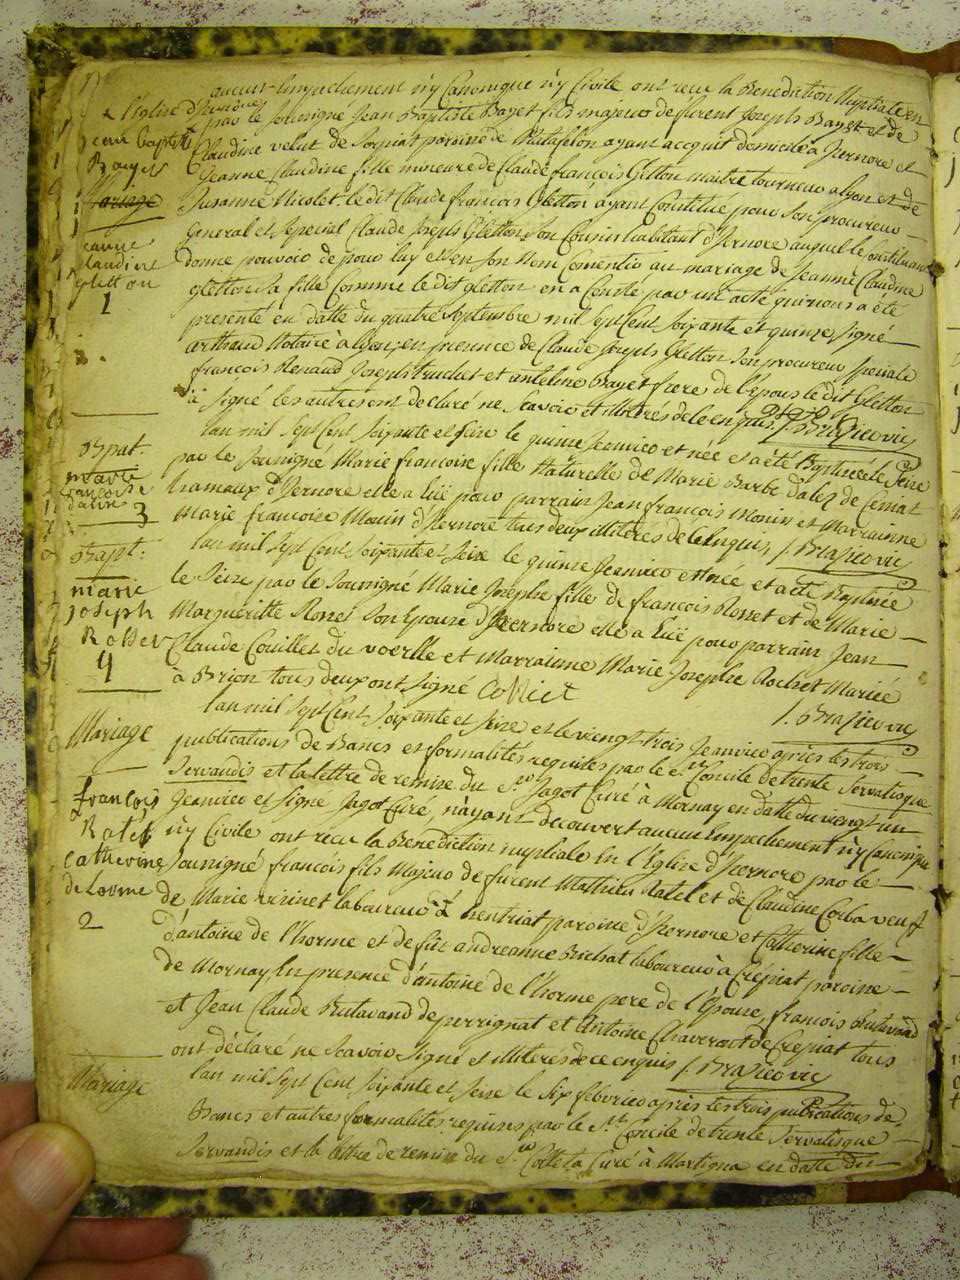 aucun Empechement n'y Canonique n'y Civile ont recu la Benediction Nuptiale en
L'Eglise d'
par le soussigné Jean Baptiste Bayet fils majeur de furent Joseph Bayet et de
Jean baptiste
Bayet
Claudine velut de Sogniat paroisse de ayant acquit domicile a Izernore et
Jeanne Claudine fille mineure de Claude françois Gletton maitre tourneur a lyon et de
Mariage
Susanne Nicolet. le dit Claude françois Gletton ayant Constitué pour son procureur
jeanne
Claudine
gletton
1
General et special Claude Joseph Gletton son Cousin habitant d'Izernore auquel le Constituant
donne pouvoir de pour luy et en son Nom Consentir au mariage de Jeanne Claudine
gletton sa fille Comme le dit gletton en a par un acte qui nous a été
presenté en datte du quatre Septembre mil sept Cent soixante et quinze signé
arthaud Notaire à Lyon, en presence de Claude Joseph Gletton son procureur speciale
françois Renaud Joseph truchet et antelme Bayet frere de l'epous le dit Gletton
a Signé les autres ont declaré ne Scavoir et illiteres de ce enquis
lan mil Sept Cent Soixante et Seize le quinze Janvier et née et a été Baptisée le Seize
Bapt.
marie
françoise
3
par le Soussigné Marie françoise fille Naturelle de Marie Barbe dalez de Ceniat
hameaux d'Izernore elle a Eüe pour parrain Jean françois Monin et Marrainne
Marie françoise Monin d'Izernore tous deux illiteres de ce Enquis
Bapt:
marie
joseph
Rosset
4
lan mil Sept Cent Soixante et Seize le quinze Janvier est née et a été Baptisée
le Seize par le Soussigné Marie Josephe fille de françois Rosset et de Marie
Marguéritte son Epouse d'Izernore elle a Eüe pour parrain Jean
Claude Couillet du voerlle et Marrainne Marie Josephe Rochet Mariée
a Brion tous deux ont signé Colliet
Mariage
lan mil Sept Cent Soixante et Seize et le vingt trois Janvier apres les trois
publications de Bancs et formalités requises par le St. Concile de trente Servatisque
Servandis et la lettre de remise du Sr. Jagot Curé à Mornay en datte du vingt un
françois
Ratel
Catherine
de Lorme
2
Janvier et signé Jagot Curé, n'ayant decouvert aucun Empechement n'y Canonique
n'y Civile ont recu la Benediction nuptiale En L'Eglise d'Izernore par le
Soussigné françois fils Majeur de furent Mathieu Ratel et de Claudine Corba veuf
de Marie virinet laboureur à paroisse d'Izernore et Catherine fille
d'antoine de l'horme et de füe andreanne Buchat laboureur à Crépiat paroisse
de Mornay, En presence d'antoine de l'horme pere de l'Epouse, françois Butavand
et Jean Claude Butavand de perrignat et Antoine Chaverrot de Crepiat tous
ont déclaré ne scavoir Signé et illiterés de ce enquis
Mariage
lan mil Sept Cent Soixante et Seize le Six fébvrier apres les trois publications de
Bancs et autres formalités requises par le St. Concile de trente Servatisque
Servandis et la lettre de remise du Sr. Colletta Curé à Martigna en datte du